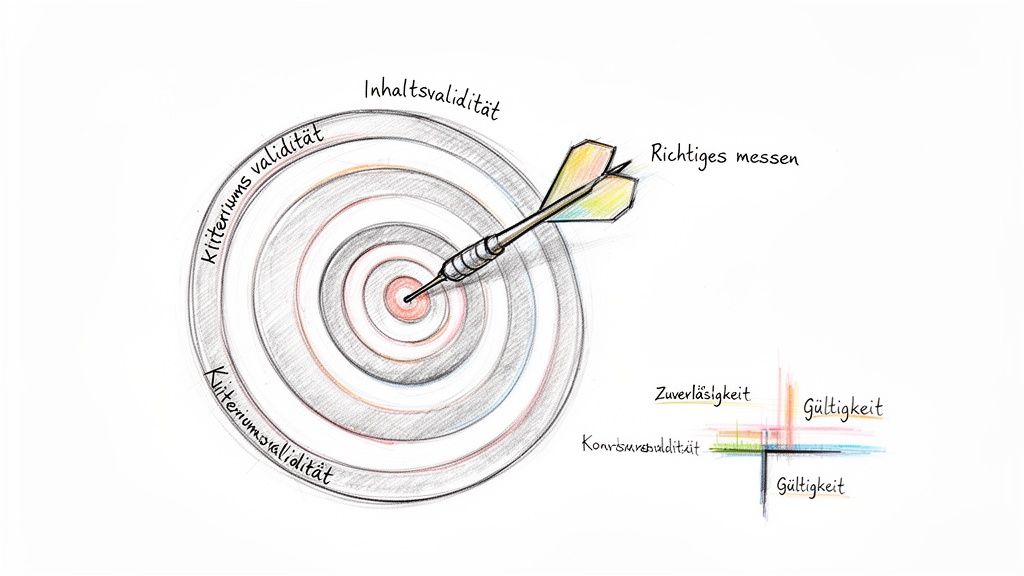 Inhaltsvalidität
kriteriums validität
Richtiges messen
Kriteriumsvalidität
Zuverläsigkeit
Gültigkeit
Gültigkeit